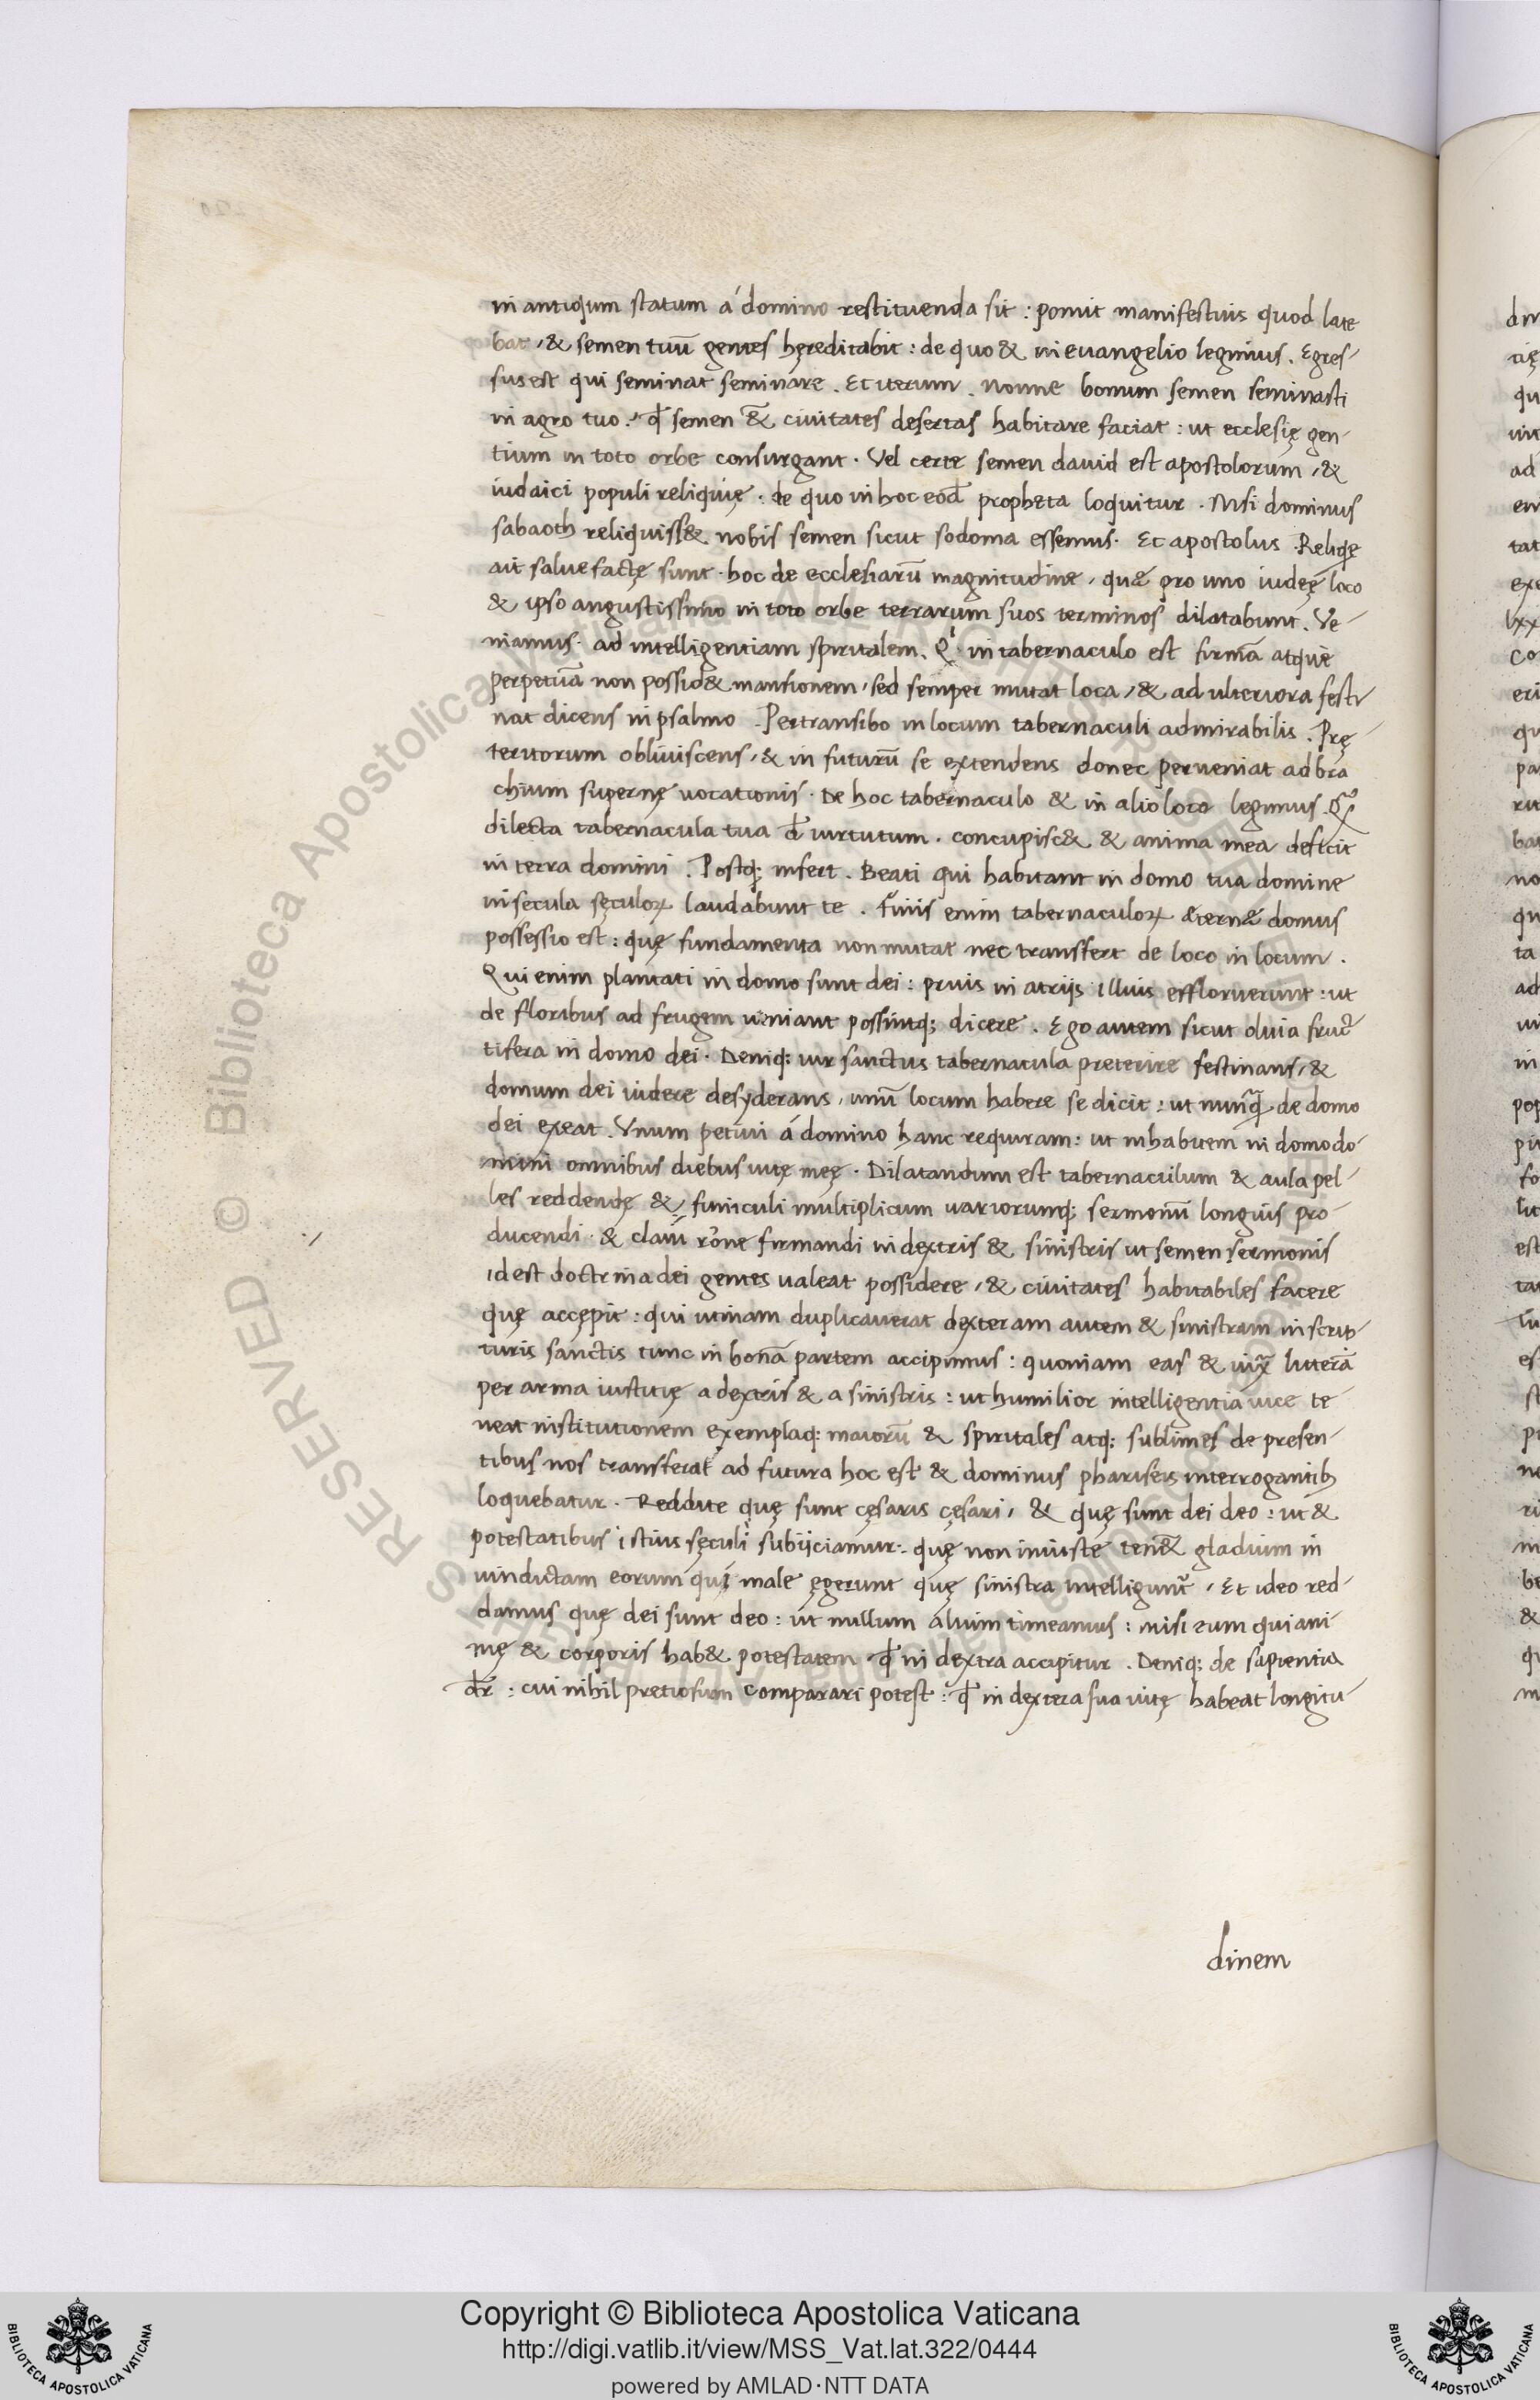 in antiqum statum á domino restituenda sit : ponit manifestius quod late
bat, & semen tuū gentes hęreditabit : de quo & in euangelio legimus. Egres-
sus est qui seminat seminare. Et iterum. Nonne bonum semen seminasti
in agro tuo. qđ semen &̄ ciuitates desertas habitare faciat : ut ecclesię gen-
tium in toto orbe consurgant. Vel certe semen dauid est apostolorum, &
iudaici populi reliquię : de quo in hoc eōd propheta loquitur. Nisi dominus
sabaoth reliquiss& nobis semen sicut sodoma essemus. Et apostolus. Reliqę
ait salue factę sunt. hoc de ecclesiarū magnitudine, quæ pro uno iudeę loco
& ipso angustissimo in toto orbe terrarum suos terminos dilatabunt. Ve-
niamus ad intelligentiam spiritalem. Qⁱ in tabernaculo est firmā atque
perpetuā non possid& mansionem, sed semper mutat loca, & ad ulteriora festi
nat dicens in psalmo. Pertransibo in locum tabernaculi admirabilis. Prę-
teritorum obliuiscens, & in futurū se extendens donec perueniat ad bra
chium supernę uocationis. De hoc tabernaculo & in alio loco legimus. Qᵒ
dilecta tabernacula tua đ uirtutum. concupisc& & anima mea deficit
in terra domini. Postq; infert. Beati qui habitant in domo tua domine
in secula sęculoꝝ laudabunt te. Finis enim tabernaculoꝝ æternæ domus
possessio est : quę fundamenta non mutat nec transfert de loco in locum.
Qui enim plantati in domo sunt dei : prius in atrijs illius effloruerunt : ut
de floribus ad frugem ueniant possintq; dicere. Ego autem sicut oliua fruc-
tifera in domo dei. Deniq; uir sanctus tabernacula preterire festinans, &
domum dei uidere desyderans, unū locum habere se dicit : ut nunq̃ de domo
dei exeat. Vnum petiui á domino hanc requiram : ut inhabitem in domo do-
mini omnibus diebus uitę meę. Dilatandum est tabernaculum & aula pel-
les reddendę & funiculi multiplicum uariorumq; sermonū longius pro-
ducendi. & claui rōne firmandi in dextris & sinistris ut semen sermonis
id est doctrina dei gentes ualeat possidere, & ciuitates habitabiles facere
quę accępit : qui utinam duplicauerat dexteram autem & sinistram in scrip-
turis sanctis tunc in bonā partem accipimus : quoniam eas & iux̄ litterā
per arma iustitię a dextris & a sinistris : ut humilior intelligentia uice te-
neat institutionem exemplaq; maiorū & spiritales atq; sublimes de presen-
tibus nos transferat ad futura hoc est & dominus phariseis interrogantib;
loquebatur. Reddite quę sunt cęsaris cęsari, & quę sunt dei deo : ut &
potestatibus istius sęculi subijciamur. quę non iniuste ten& gladium in
uindictam eorum qui male ęgerunt quę sinistra intelligunt̃, Et ideo red-
damus quę dei sunt deo : ut nullum alium timeamus : nisi eum qui ani-
mę & corporis hab& potestatem qđ in dextra accipitur. Deniq; de sapientia
dr̄ : cui nihil pretiosum comparari potest : qđ in dextera sua uitę habeat longitu-
dinem
RESERVED © Biblioteca Apostolica Vaticana
Copyright © Biblioteca Apostolica Vaticana
http://digi.vatlib.it/view/MSS_Vat.lat.322/0444
powered by AMLAD·NTT DATA
BIBLIOTECA APOSTOLICA VATICANA
BIBLIOTECA APOSTOLICA VATICANA